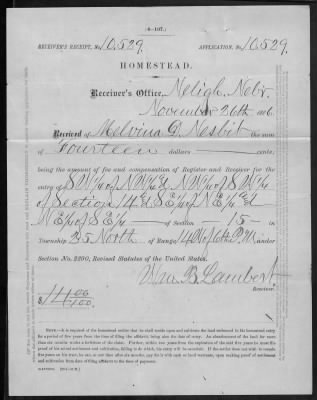 (4—137.)
RECEIVER'S RECEIPT, No. 10,529. APPLICATION, No. 10,529.
HOMESTEAD.
Receiver's Office, Neligh, Nebr.
November 26th 1886.
Received of Melvina D. Nesbit the sum
of Fourteen dollars — cents,
being the amount of fee and compensation of Register and Receiver for the
entry of SW¼ of NW¼ & NW¼ of SW¼
of Section 14 & SE¼ of NE¼ &
NE¼ of SE¼ of Section 15 in
Township 35 North of Range 14 W of 6th P.M., under
Section No. 2290, Revised Statutes of the United States.
Wm. B. Lambert
Receiver.
$14 00/100.
NOTE.—It is required of the homestead settler that he shall reside upon and cultivate the land embraced in his homestead entry
for a period of five years from the time of filing the affidavit, being also the date of entry. An abandonment of the land for more
than six months works a forfeiture of the claim. Further, within two years from the expiration of the said five years he must file
proof of his actual settlement and cultivation, failing to do which, his entry will be canceled. If the settler does not wish to remain
five years on his tract, he can, at any time after six months, pay for it with cash or land-warrants, upon making proof of settlement
and cultivation from date of filing affidavit to the time of payment.